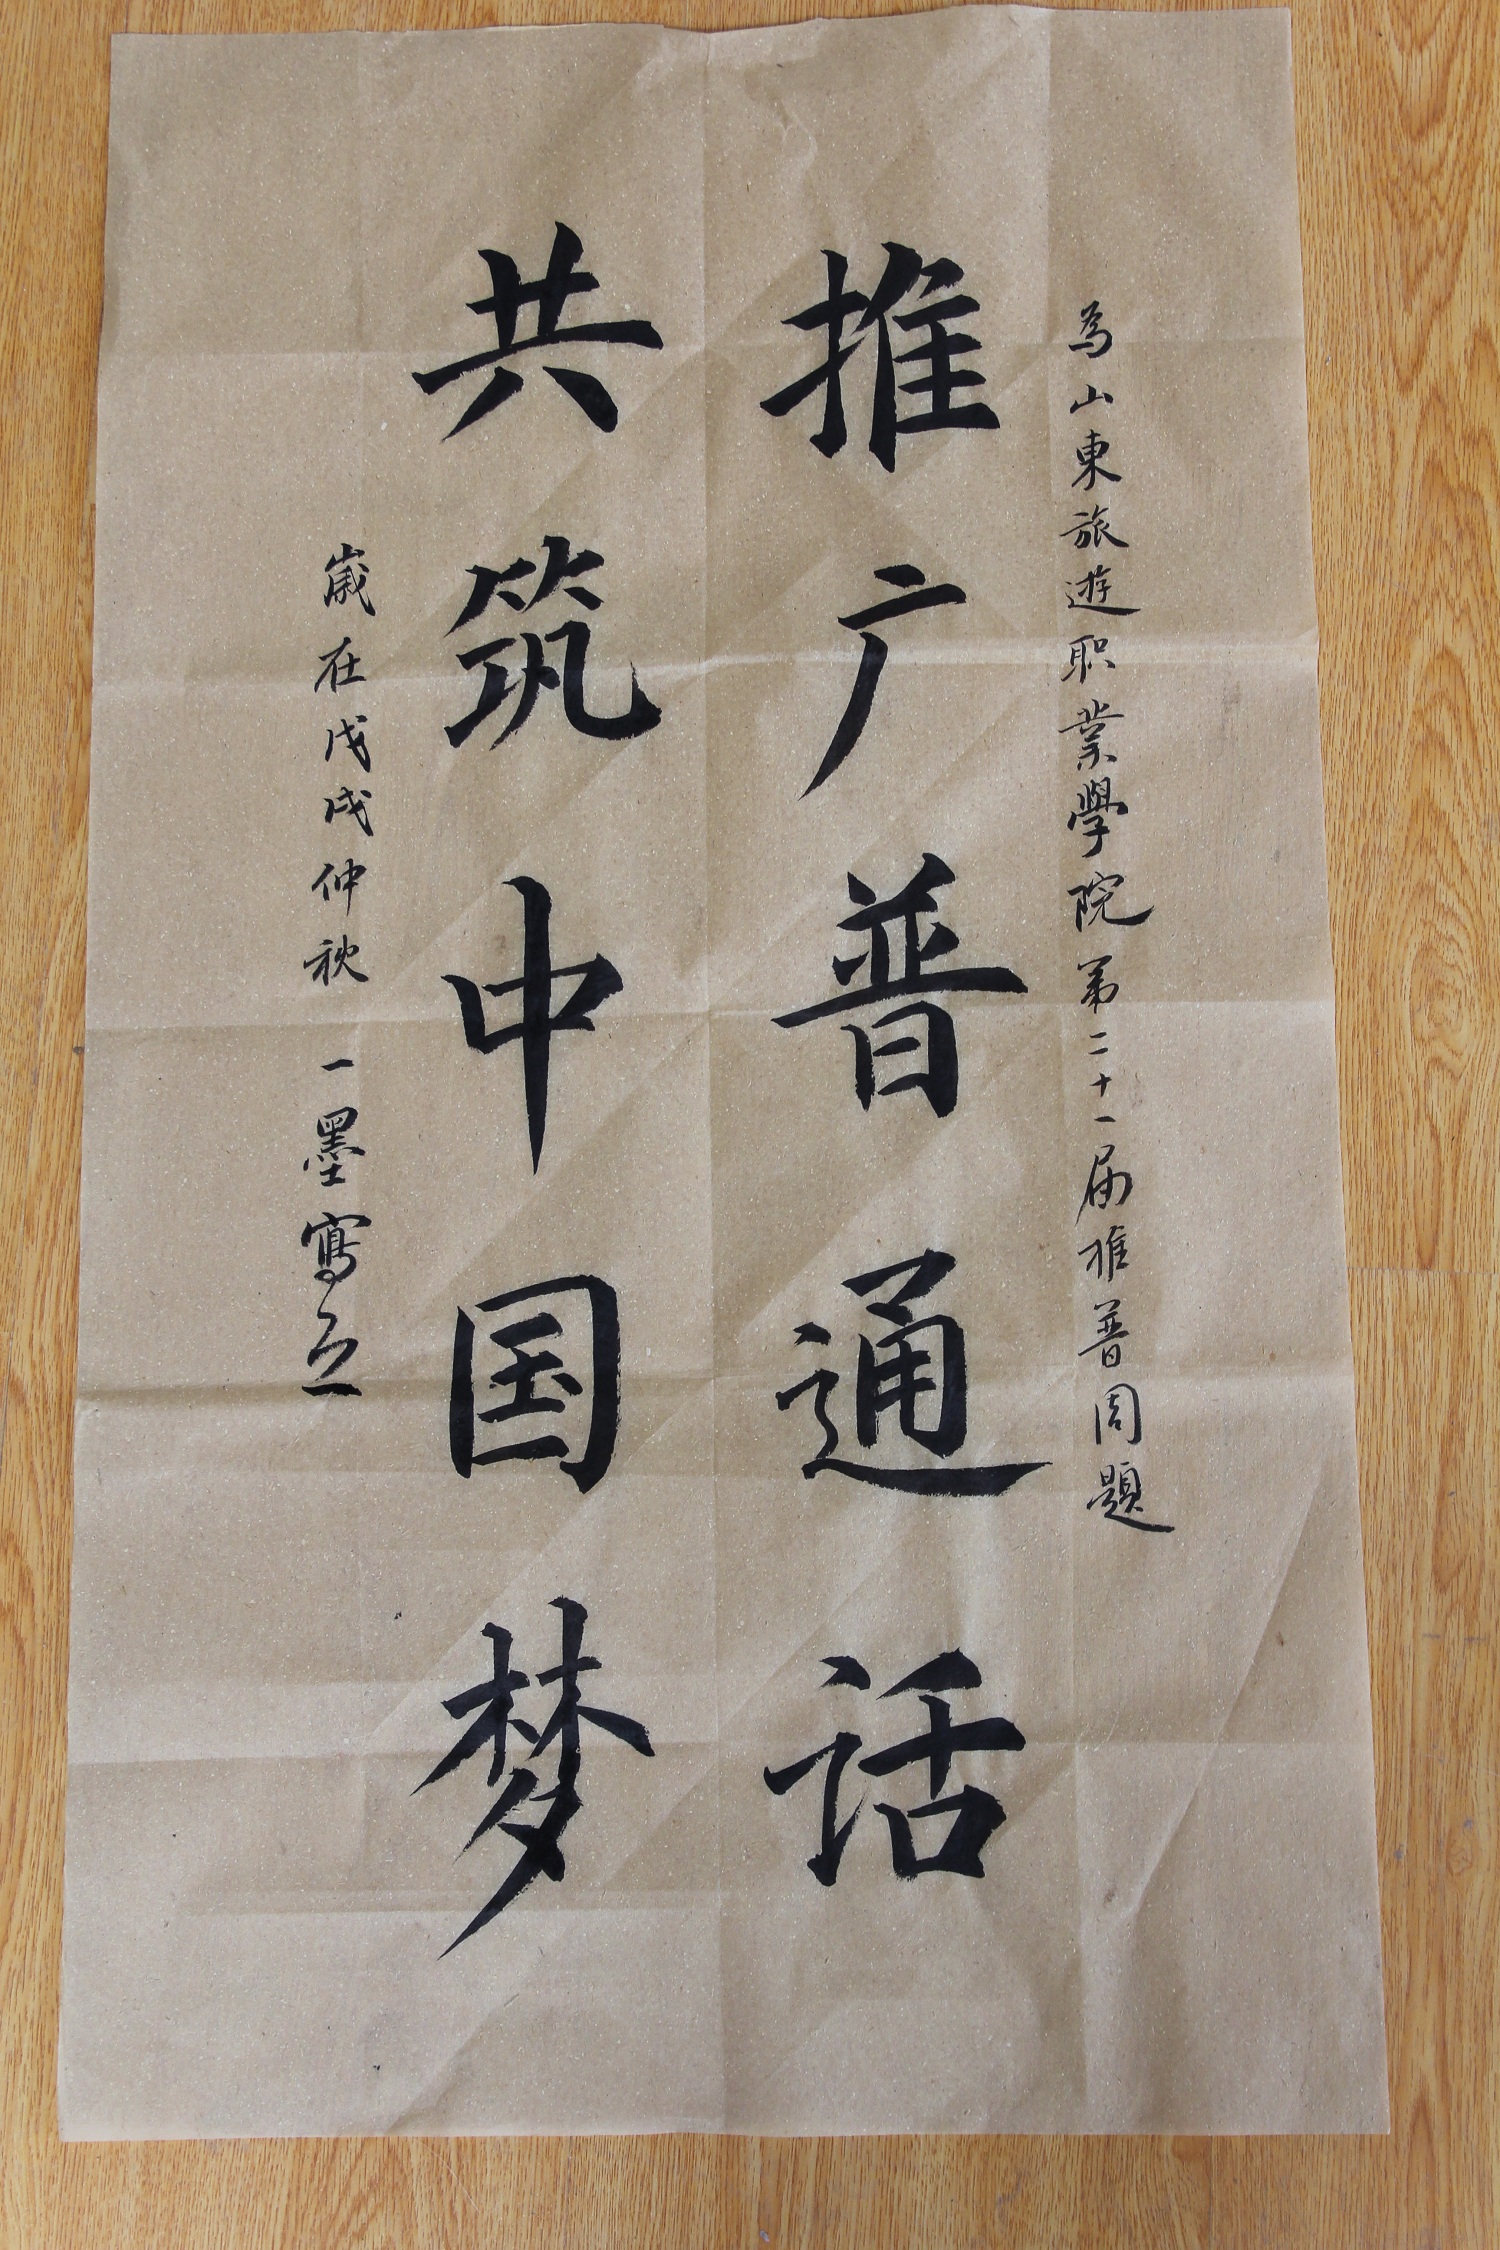 為山東旅遊职業學院第二十一届推普周題
推广普通话
共筑中国梦
歲在戊戌仲秋一墨寫之